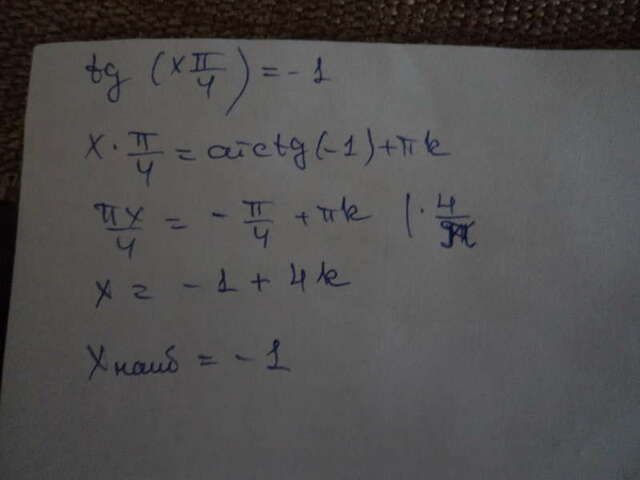 tg (x π/4) = -1
x · π/4 = arctg(-1) + πk
πx/4 = -π/4 + πk | · 4/π
x = -1 + 4k
xнаиб = -1